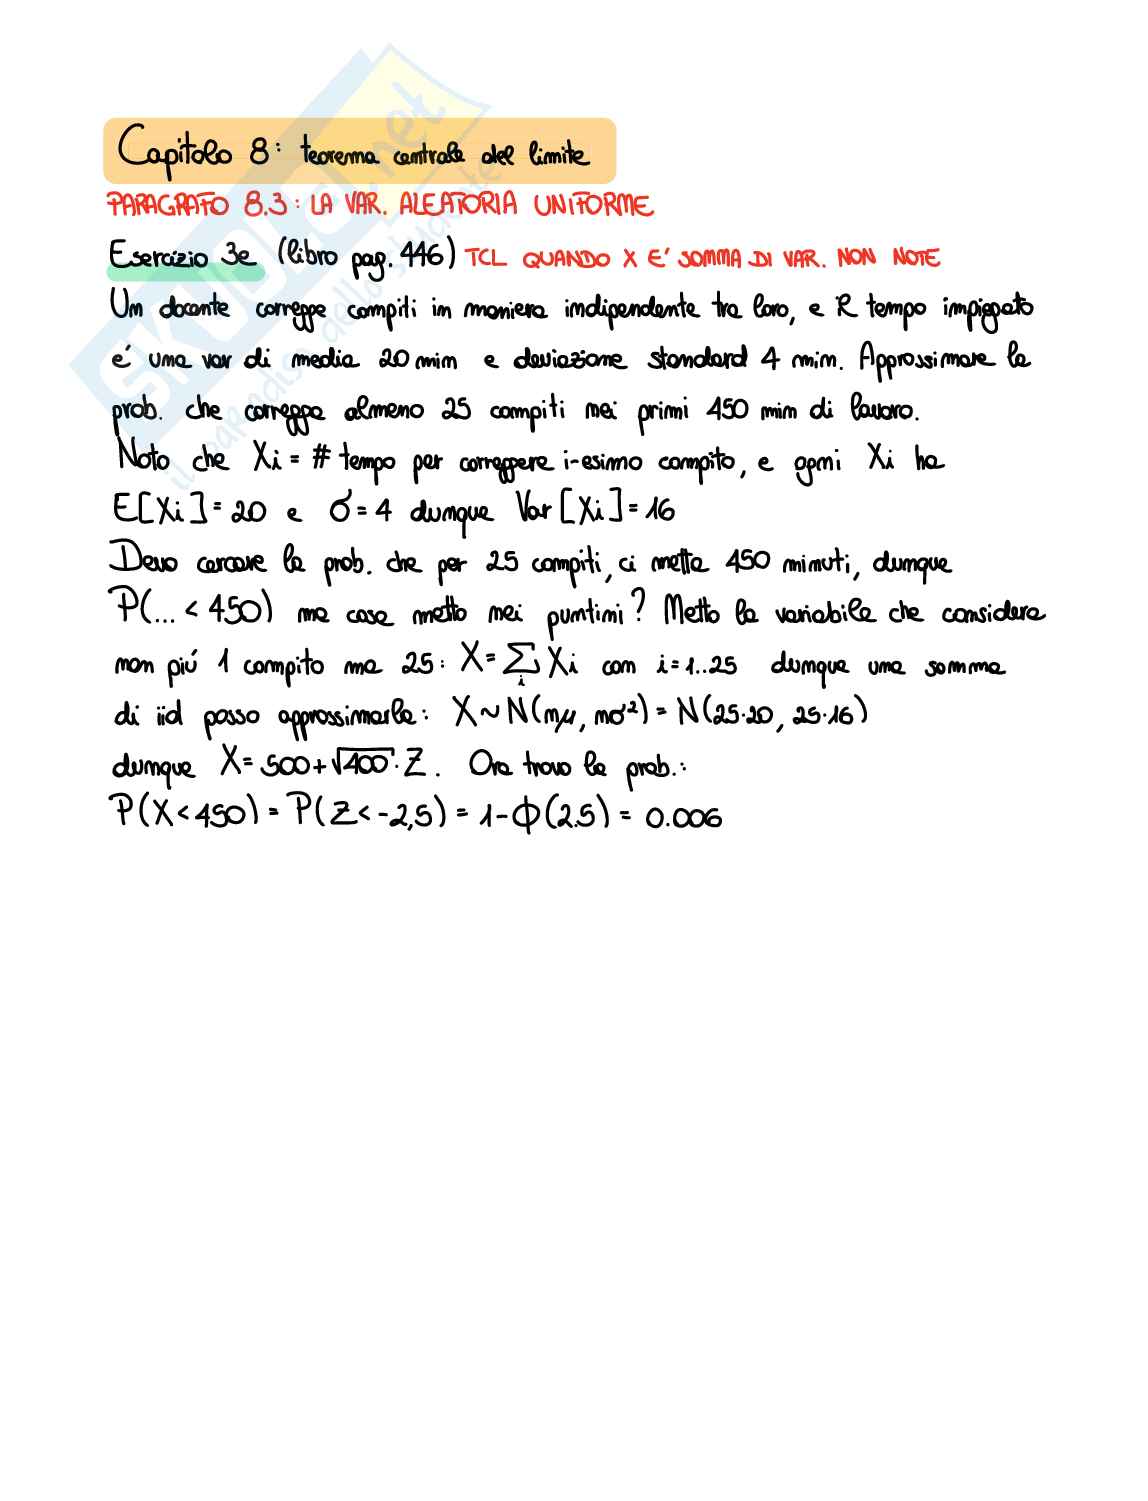 Capitolo 8: teorema centrale del limite
PARAGRAFO 8.3: LA VAR. ALEATORIA UNIFORME
Esercizio 3e (libro pag. 446) TCL QUANDO X E' SOMMA DI VAR. NON NOTE
Un docente corregge compiti in maniera indipendente tra loro, e il tempo impiegato
é una var di media 20 min e deviazione standard 4 min. Approssimare la
prob. che corregga almeno 25 compiti nei primi 450 min di lavoro.
Noto che Xi = # tempo per correggere i-esimo compito, e ogni Xi ha
E[Xi] = 20 e σ = 4 dunque Var[Xi] = 16
Devo cercare la prob. che per 25 compiti, ci metta 450 minuti, dunque
P(... < 450) ma cosa metto nei puntini? Metto la variabile che considera
non piú 1 compito ma 25: X = ∑i Xi con i=1..25 dunque una somma
di iid posso approssimarla: X ~ N(nμ, nσ²) = N(25·20, 25·16)
dunque X = 500 + √400 · Z. Ora trovo la prob.:
P(X < 450) = P(Z < -2,5) = 1 - Φ(2.5) = 0.006
SKUOLA.net
il paradiso dello studente